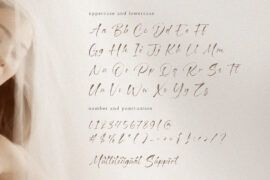 uppercase and lowercase
Aa Bb Cc Dd Ee Ff
Gg Hh Ii Jj Kk Ll Mm
Nn Oo Pp Qq Rr Ss Tt
Uu Vv Ww Xx Yy Zz
number and punctuation
1234567890
Multilingual Support